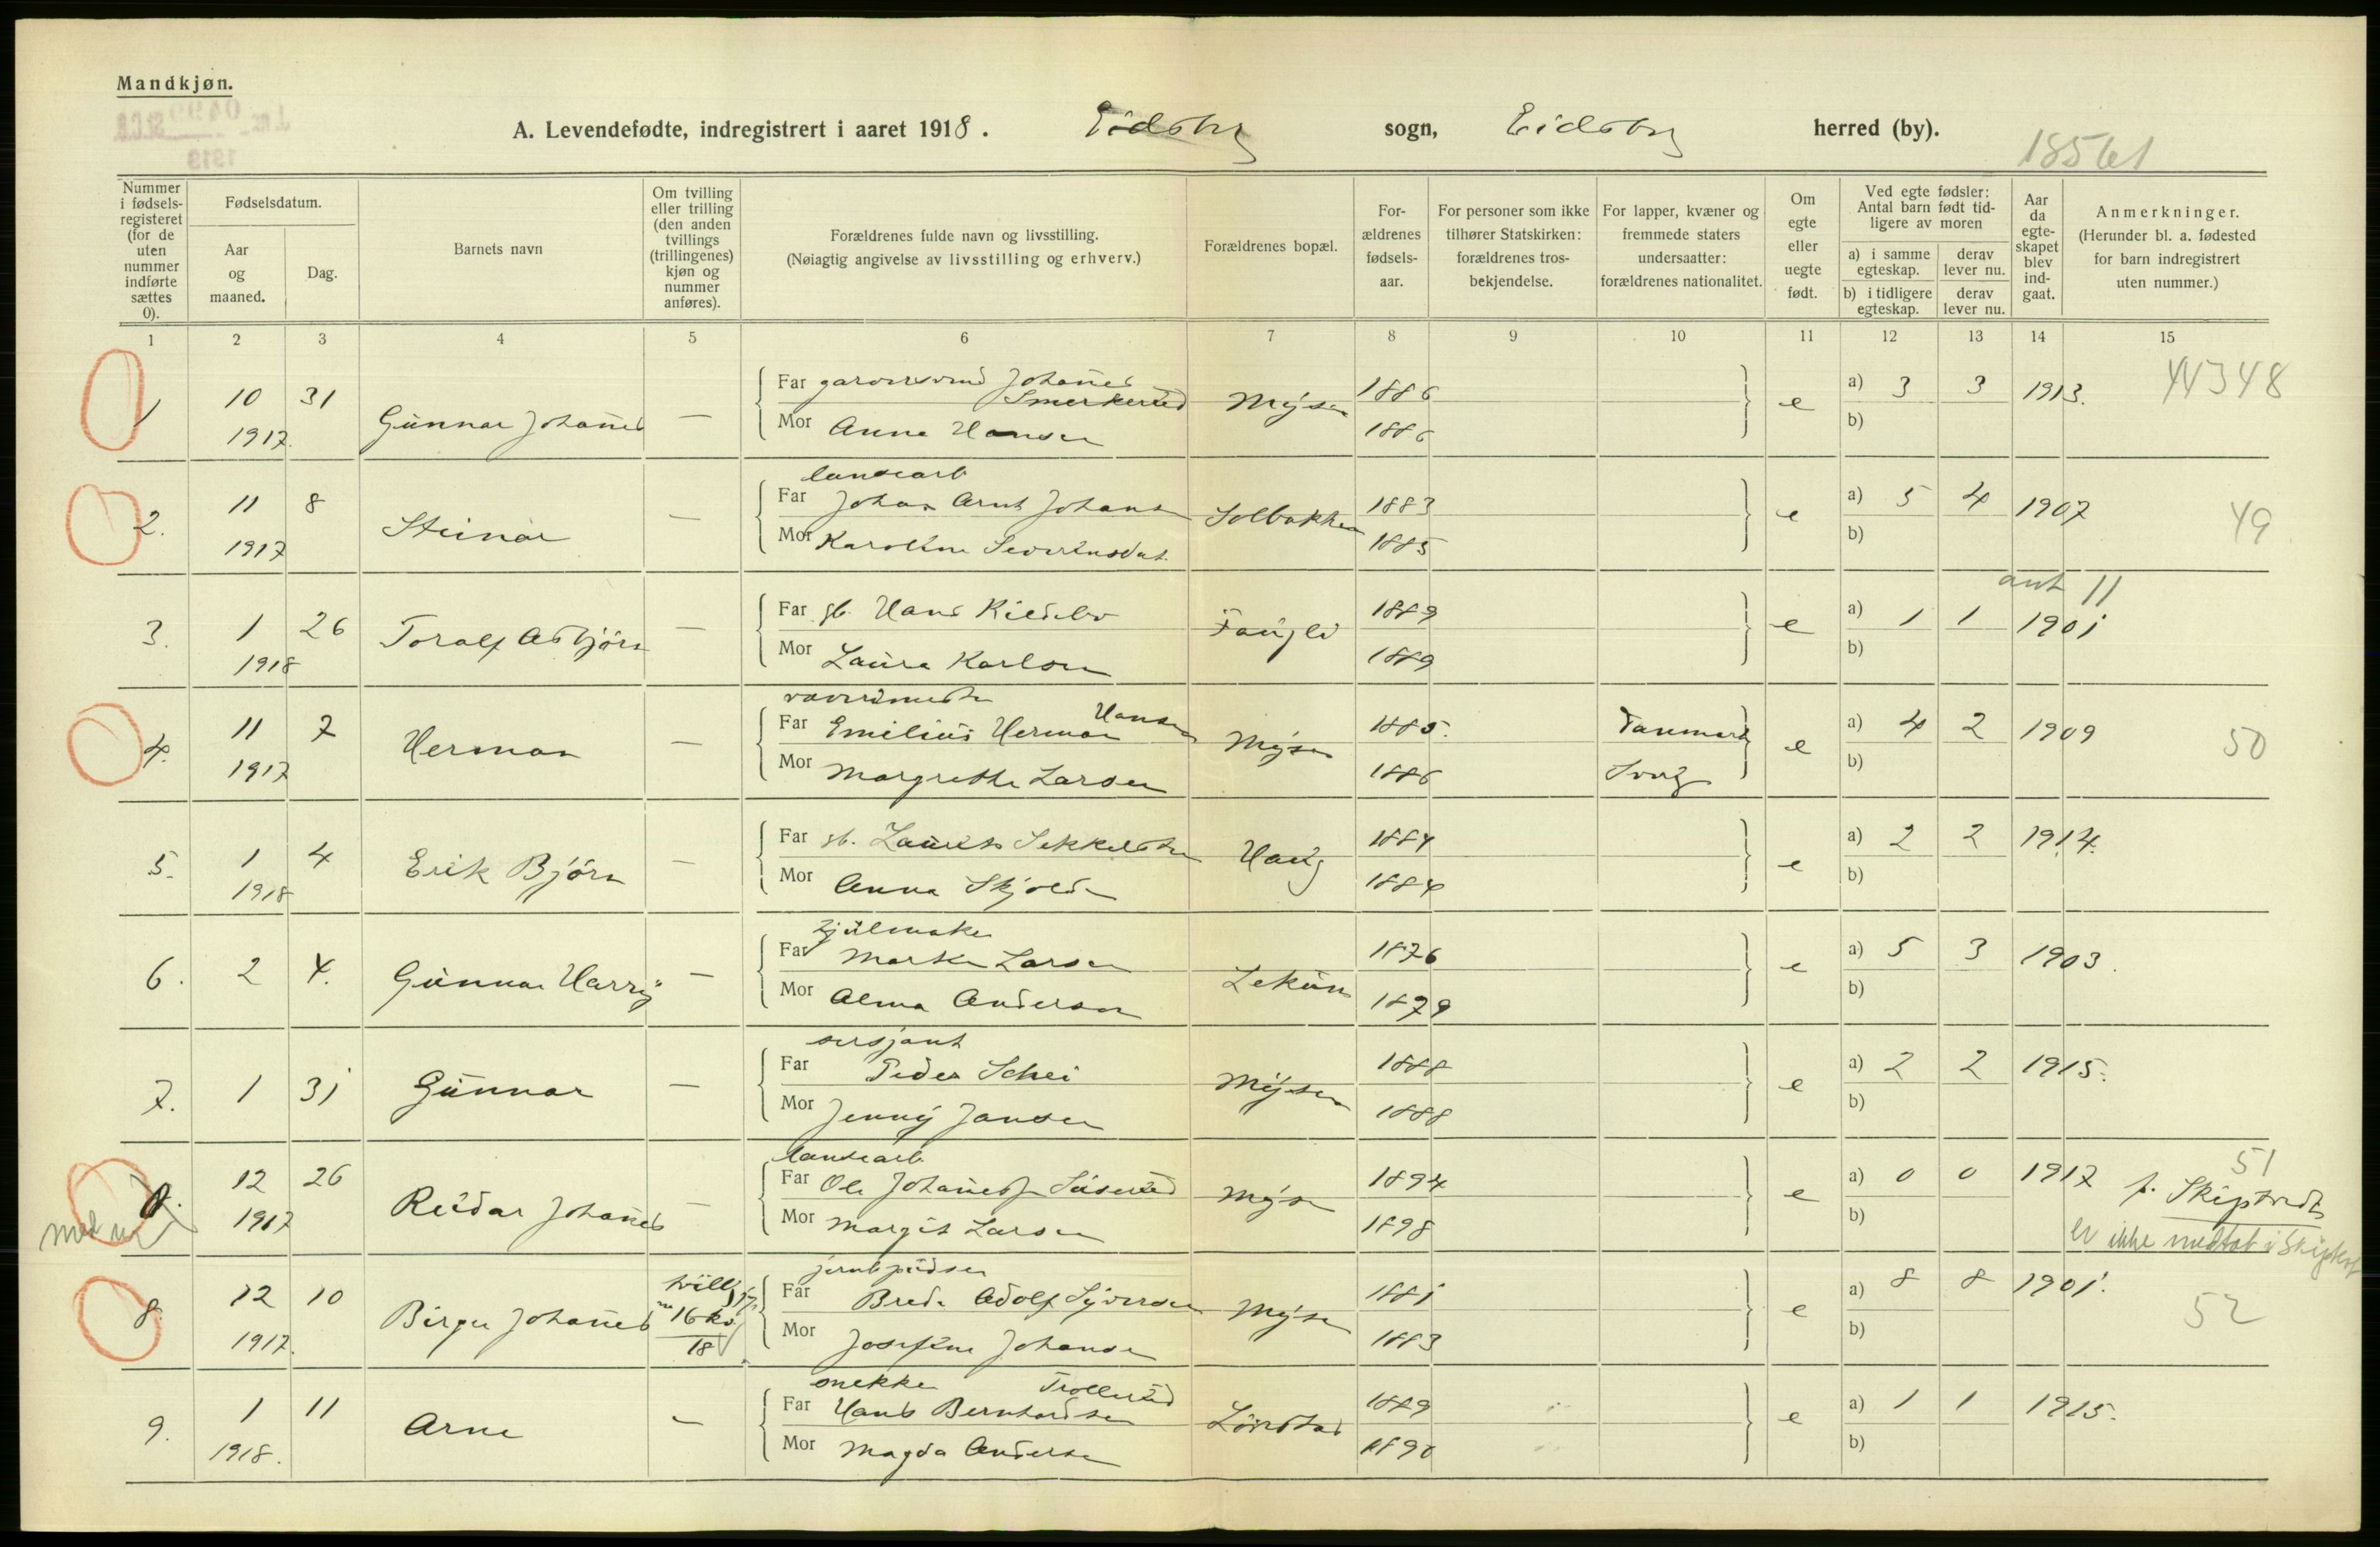 Mandkjøn.
A. Levendefødte, indregistrert i aaret 1918. Eidsberg sogn, Eidsberg herred (by).
18561
Nummer i fødsels-registeret (for de uten nummer indførte sættes 0).
Fødselsdatum.
Aar og maaned.
Dag.
Barnets navn
Om tvilling eller trilling (den anden tvillings (trillingenes) kjøn og nummer anføres).
Forældrenes fulde navn og livsstilling.
(Nøiagtig angivelse av livsstilling og erhverv.)
Forældrenes bopæl.
For-ældrenes fødsels-aar.
For personer som ikke tilhører Statskirken: forældrenes tros-bekjendelse.
For lapper, kvæner og fremmede staters undersaatter: forældrenes nationalitet.
Om egte eller uegte født.
Ved egte fødsler: Antal barn født tid-ligere av moren
a) i samme egteskap.
derav lever nu.
b) i tidligere egteskap.
derav lever nu.
Aar da egte-skapet blev ind-gaat.
Anmerkninger.
(Herunder bl. a. fødested for barn indregistrert uten nummer.)
1 2 3 4 5 6 7 8 9 10 11 12 13 14 15
1 10 1917. 31 Gunnar Johannes —
Far Johannes Smerkerud
Mor Anna Hansen
Mysen 1886 1886 e a) 3 3 1913. b)
44348
2. 11 1917 8 Steinar —
landearb
Far Johan Arnt Johans
Mor Karoline Severinsdat.
Solbakken 1883 1885 e a) 5 4 1907 b)
49
3. 1 1918 26 Toralf Asbjörn —
Far gb. Hans
Mor Laura Karlsen
1889 1889 e a) 1 1 1901 b)
ant 11
4. 11 1917 7 Herman —
Far Emilius Herman Hansen
Mor Margrethe Larsen
Mysen 1885. 1886 Danmark Sverg e a) 4 2 1909 b)
50
5. 1 1918 4 Erik Björn —
Far gb. Laurits
Mor Anna Skjold
Haug 1884 1884 e a) 2 2 1914. b)
6. 2 4. Gunnar Harry —
hjulmaker
Far Larsen
Mor Alma Anderson
Lekum 1876 1879 e a) 5 3 1903. b)
7. 1 31 Gunnar —
sersjant
Far Peder Schei
Mor Jenny Jansen
Mysen 1888 1888 e a) 2 2 1915. b)
0. 12 1917 26 Reidar Johannes —
landearb
Far Ole Johannes
Mor Margit Larsen
Mysen 1894 1898 e a) 0 0 1917 b)
51
f. Skiptvedt
er ikke medtat i Skiptvet
8. 12 1917. 10 Birger Johannes
tvill 16 kv 18
Far Brede Adolf Syversen
Mor Josefine Johansen
Mysen 1881 1883 e a) 8 8 1901. b)
52
9. 1 1918. 11 Arne —
snekker
Far Hans Bernhardsen Trollerud
Mor Magda Andersen
1889 1890 e a) 1 1 1915. b)